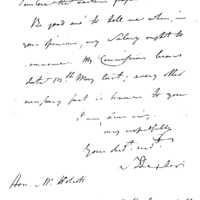 Be good enô to tell me when, in
your opinion, my Salary ought to
commence. My Commission bears
date 13th May last; every other
necessary fact is known to you
I am, dear sir,
very respectfully
Your obt. servt.
S Dexter
Hon. Mr Wolcott